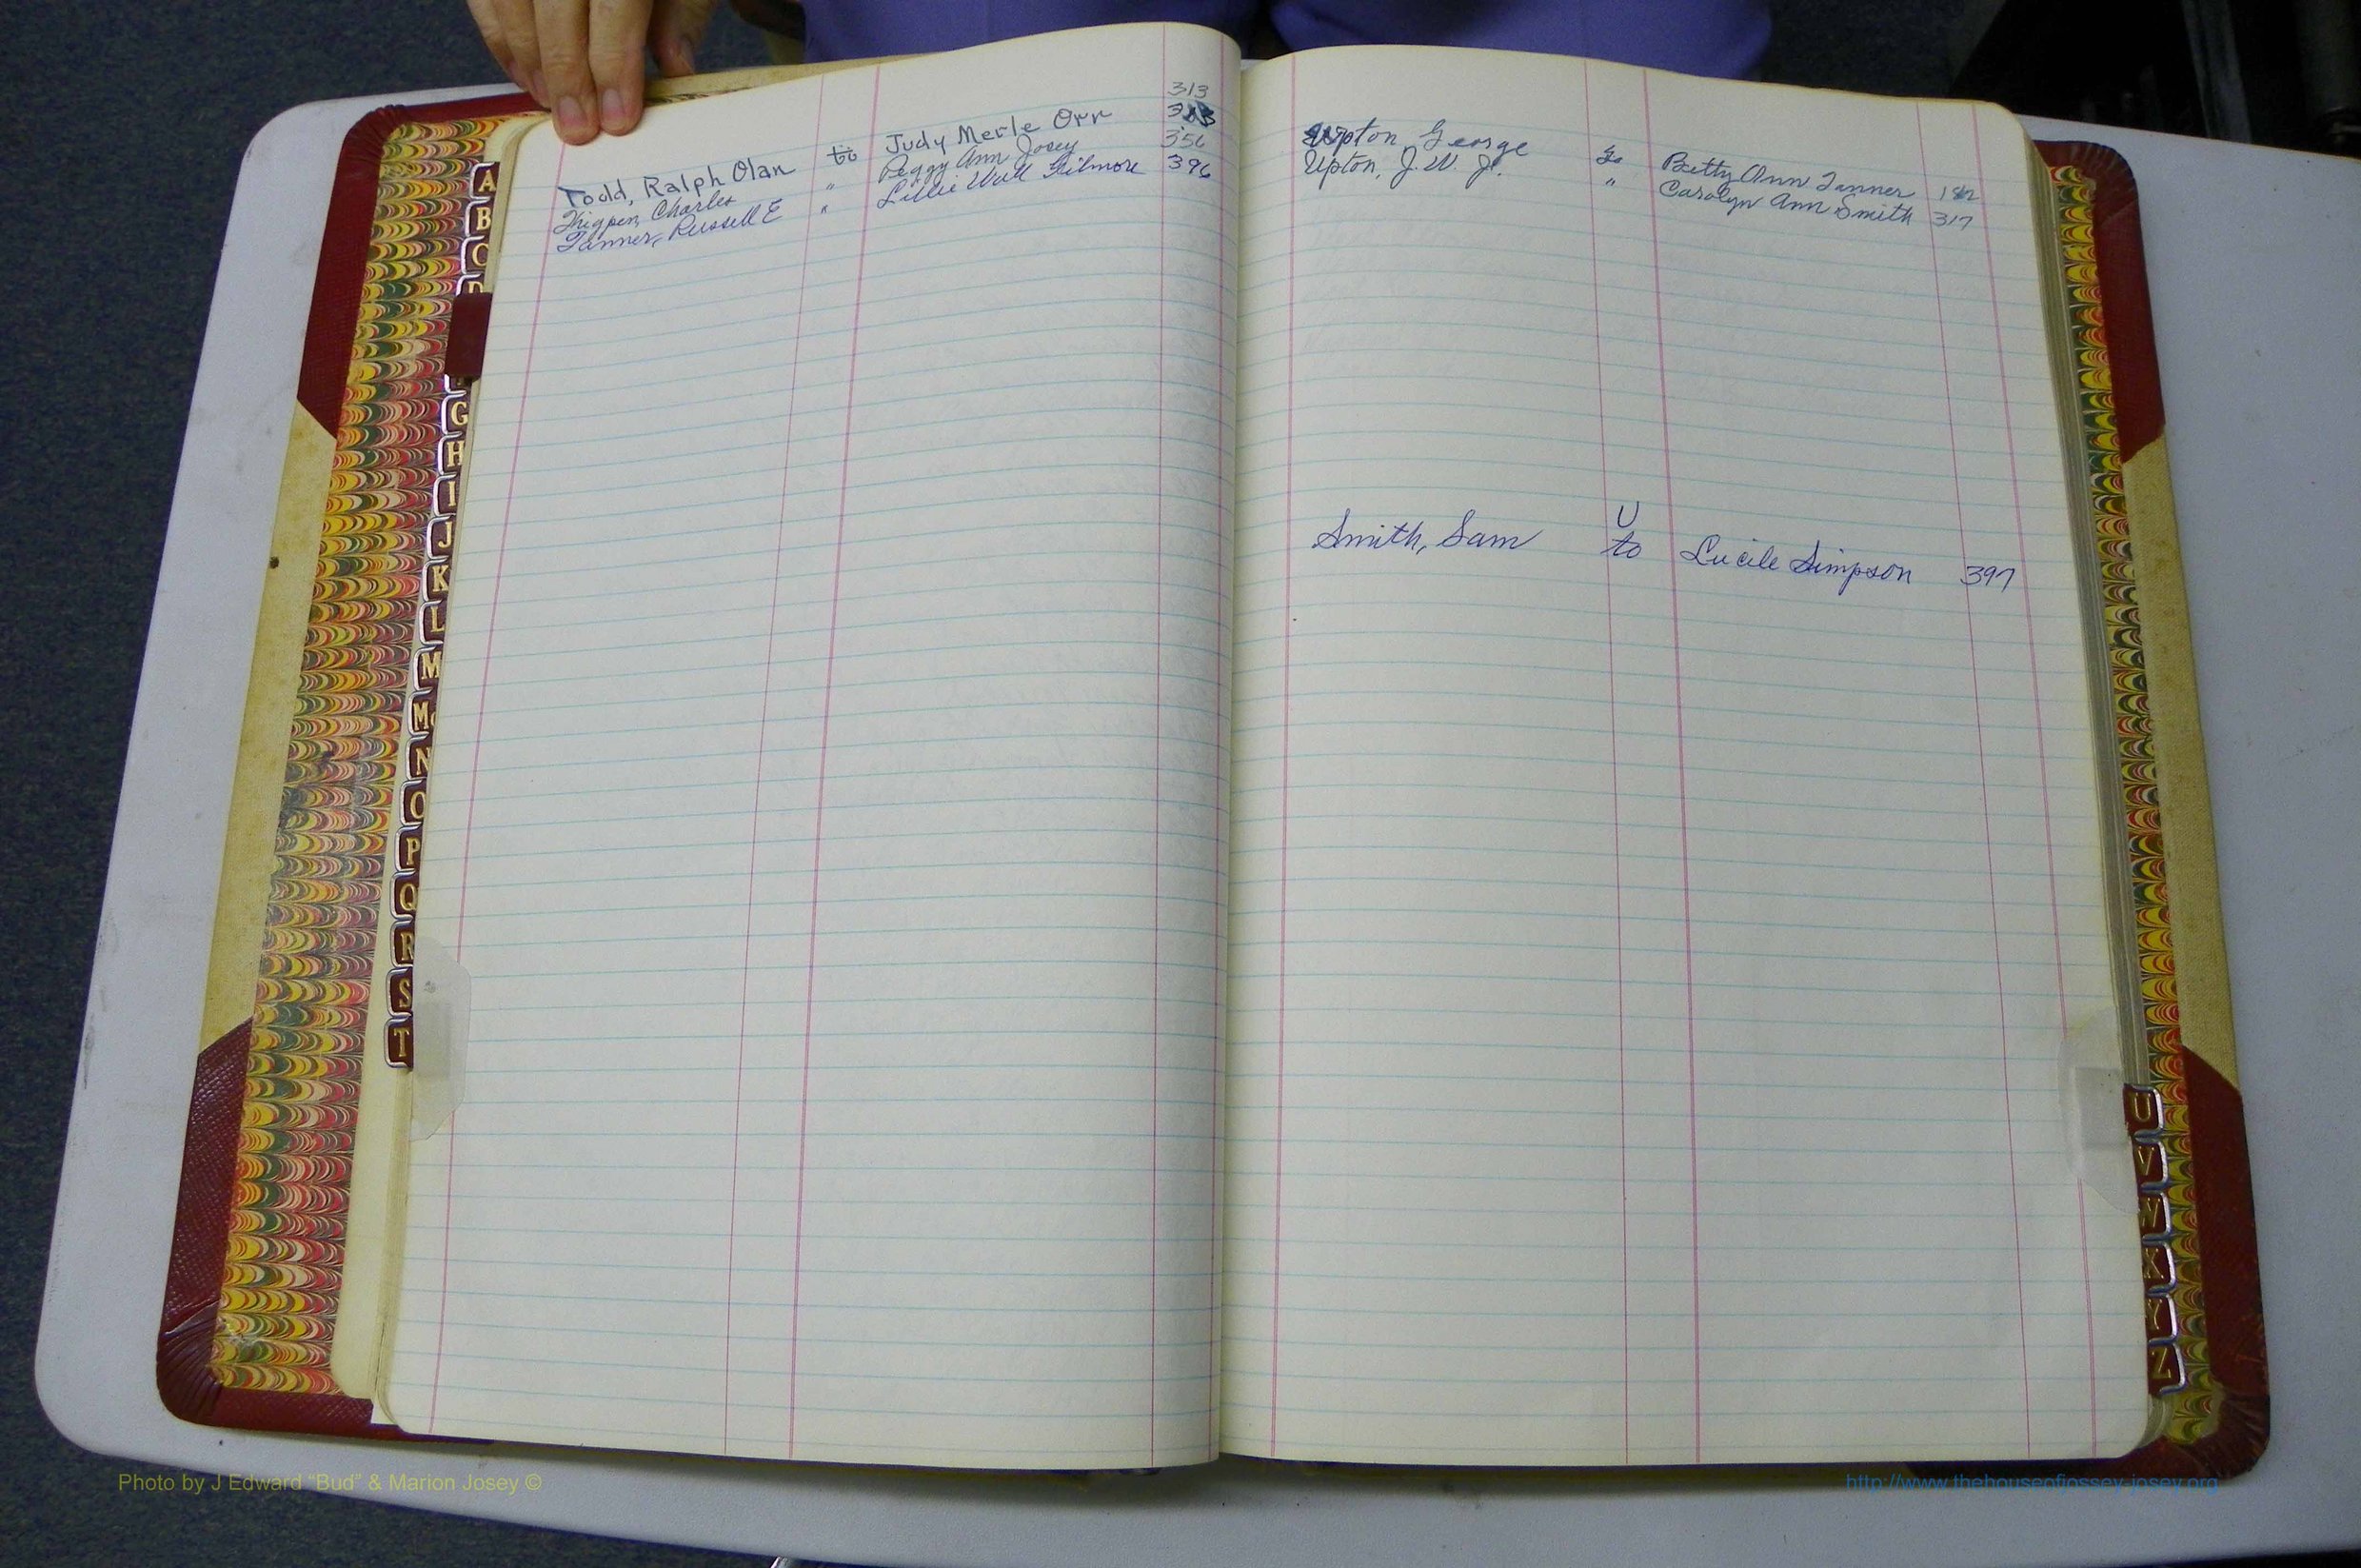 313
Todd, Ralph Olan to Judy Merle Orr
Thigpen, Charles " Peggy Ann Josey 356
Tanner, Russell E " Lillie Gilmore 396
Upton George to Betty Ann Tanner
Upton, J. W. Jr. " Carolyn Ann Smith 317
U
Smith, Sam to Lucile Simpson 397
A
B
C
D
G
H
I
J
K
L
M
Mc
N
O
P
Q
R
S
T
U
V
W
X
Y
Z
Photo by J Edward “Bud” & Marion Josey ©
http://www.thehouseofjossey-josey.org